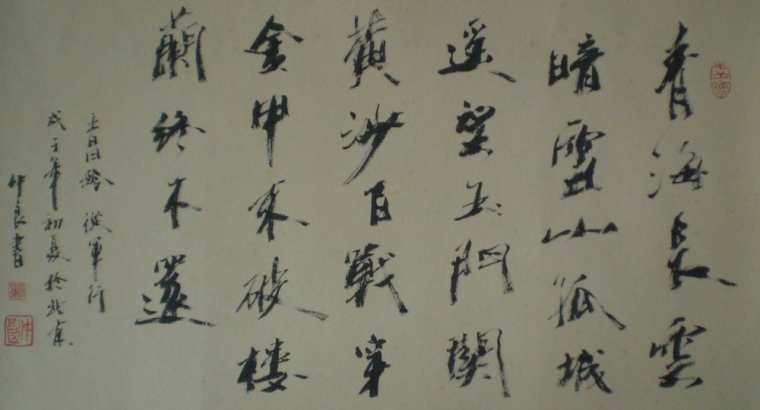 青海長雲
暗雪山孤城
遥望玉門關
黄沙百戰穿
金甲未破楼
蘭終不還
王昌龄 從軍行
年初夏於北京
仲良書